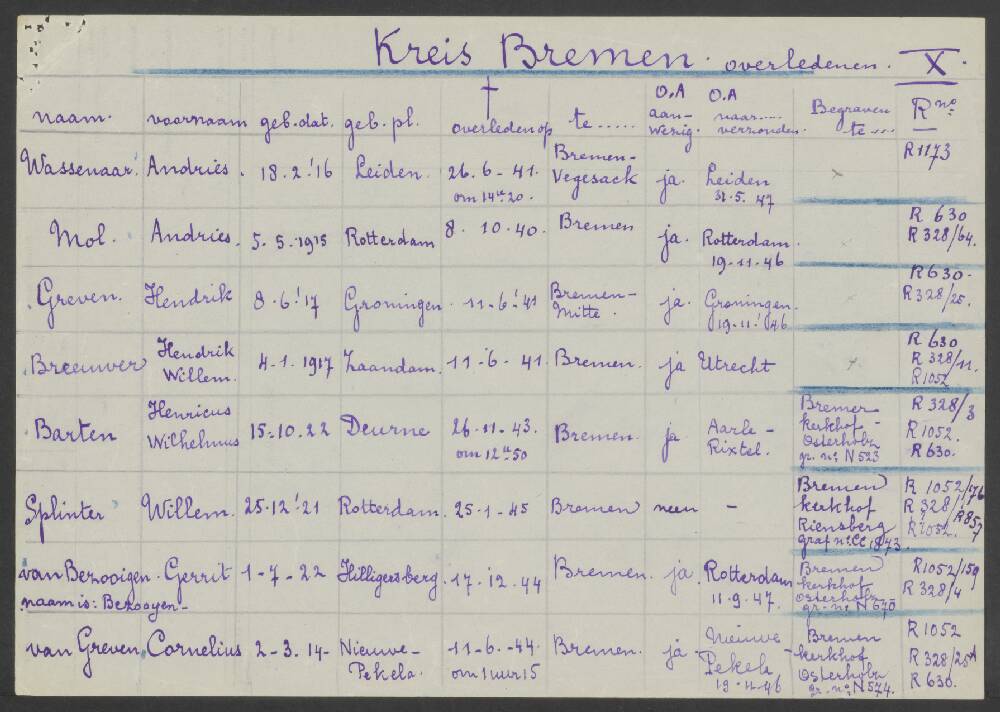 Kreis Bremen. overledenen. X.
naam. voornaam geb. dat. geb. pl. † overleden op te ..... O.A aan-wezig. O.A naar..... verzonden. Begraven te .... R no.
Wassenaar. Andries. 18.2.'16 Leiden. 26.6-41. om 14 uur 20. Bremen-Vegesack ja. Leiden 31.5.47 x R1173
Mol. Andries. 5.5.1915 Rotterdam 8.10.40. Bremen ja. Rotterdam. 19-11-46 x R 630 R 328/64.
Greven. Hendrik 8.6.'17 Groningen. 11-6.'41 Bremen-Mitte. ja. Groningen. 19-11.'46 x R630. R328/25.
Breeuwer Hendrik Willem. 4.1.1917 Zaandam. 11-6-41. Bremen. ja Utrecht x R 630 R 328/11. R1052
Barten Henricus Wilhelmus 15-10.22 Deurne 26-11-43. om 12 u 50 Bremen. ja. Aarle-Rixtel. Bremer kerkhof-Osterholz gr. no. N523 R 328/3 R1052. R 630.
Splinter Willem. 25.12.'21 Rotterdam. 25-1-45 Bremen neen - Bremen kerkhof Riensberg graf no. CC 1873. R 1052/76 R 328/ R1052. R857
van Bezooigen. Gerrit 1-7-22 Hilligersberg. 17.12.44 Bremen. ja. Rotterdam 11-9.47. Bremen kerkhof Osterholz gr. no N670 R1052/159 R 328/4
naam is: Bezooyen-
van Greven. Cornelius 2-3.14- Nieuwe-Pekela. 11-6.44. om 1 uur 15 Bremen. ja - Nieuwe Pekela 19-11-46 Bremen kerkhof Osterholz gr. no. N574. R1052 R 328/25A R 630.